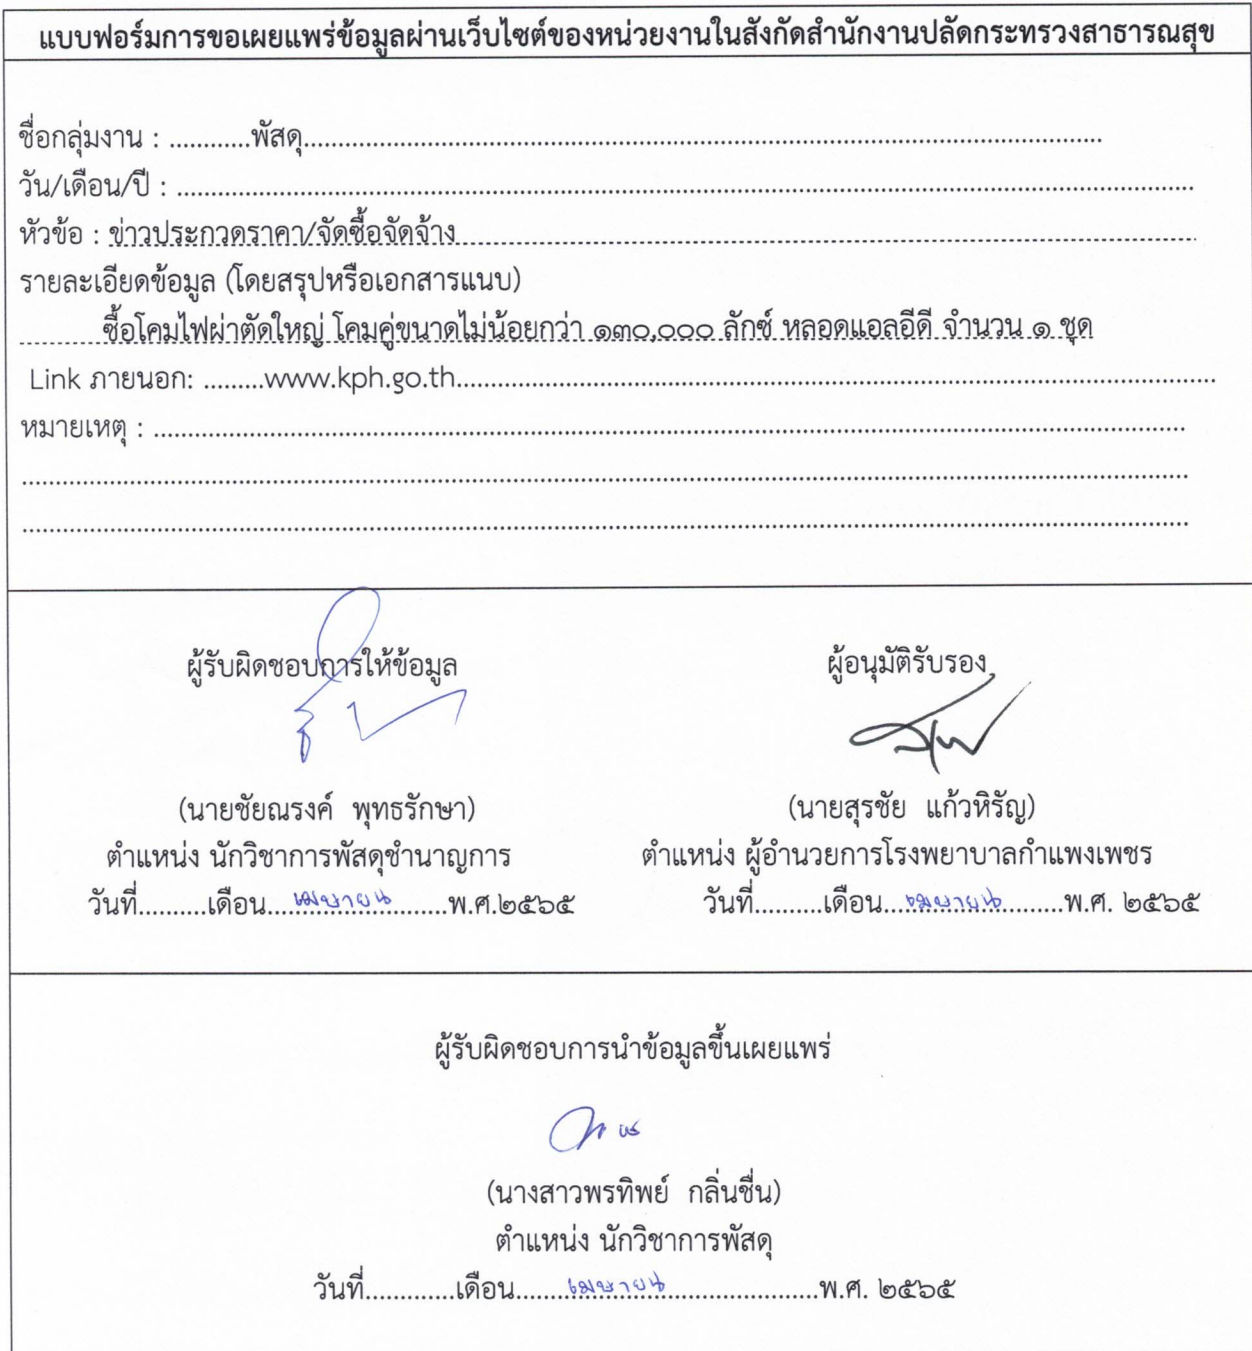 แบบฟอร์มการขอเผยแพร่ข้อมูลผ่านเว็บไซต์ของหน่วยงานในสังกัดสำนักงานปลัดกระทรวงสาธารณสุข
ชื่อกลุ่มงาน : ............พัสดุ......................................................................................................................
วัน/เดือน/ปี : ......................................................................................................................................................
หัวข้อ : ข่าวประกวดราคา/จัดซื้อจัดจ้าง..............................................................................................................
รายละเอียดข้อมูล (โดยสรุปหรือเอกสารแนบ)
............ซื้อโคมไฟผ่าตัดใหญ่ โคมคู่ขนาดไม่น้อยกว่า ๑๓๐,๐๐๐ ลักซ์ หลอดแอลอีดี จำนวน ๑ ชุด
Link ภายนอก: .........www.kph.go.th..............................................................................................................
หมายเหตุ : ........................................................................................................................................................
..............................................................................................................................................................................
..............................................................................................................................................................................
ผู้รับผิดชอบการให้ข้อมูล ผู้อนุมัติรับรอง
(นายชัยณรงค์ พุทธรักษา) (นายสุรชัย แก้วหิรัญ)
ตำแหน่ง นักวิชาการพัสดุชำนาญการ ตำแหน่ง ผู้อำนวยการโรงพยาบาลกำแพงเพชร
วันที่..........เดือน....เมษายน........พ.ศ.๒๕๖๕ วันที่..........เดือน...เมษายน.........พ.ศ. ๒๕๖๕
ผู้รับผิดชอบการนำข้อมูลขึ้นเผยแพร่
(นางสาวพรทิพย์ กลิ่นชื่น)
ตำแหน่ง นักวิชาการพัสดุ
วันที่.............เดือน........เมษายน......................พ.ศ. ๒๕๖๕